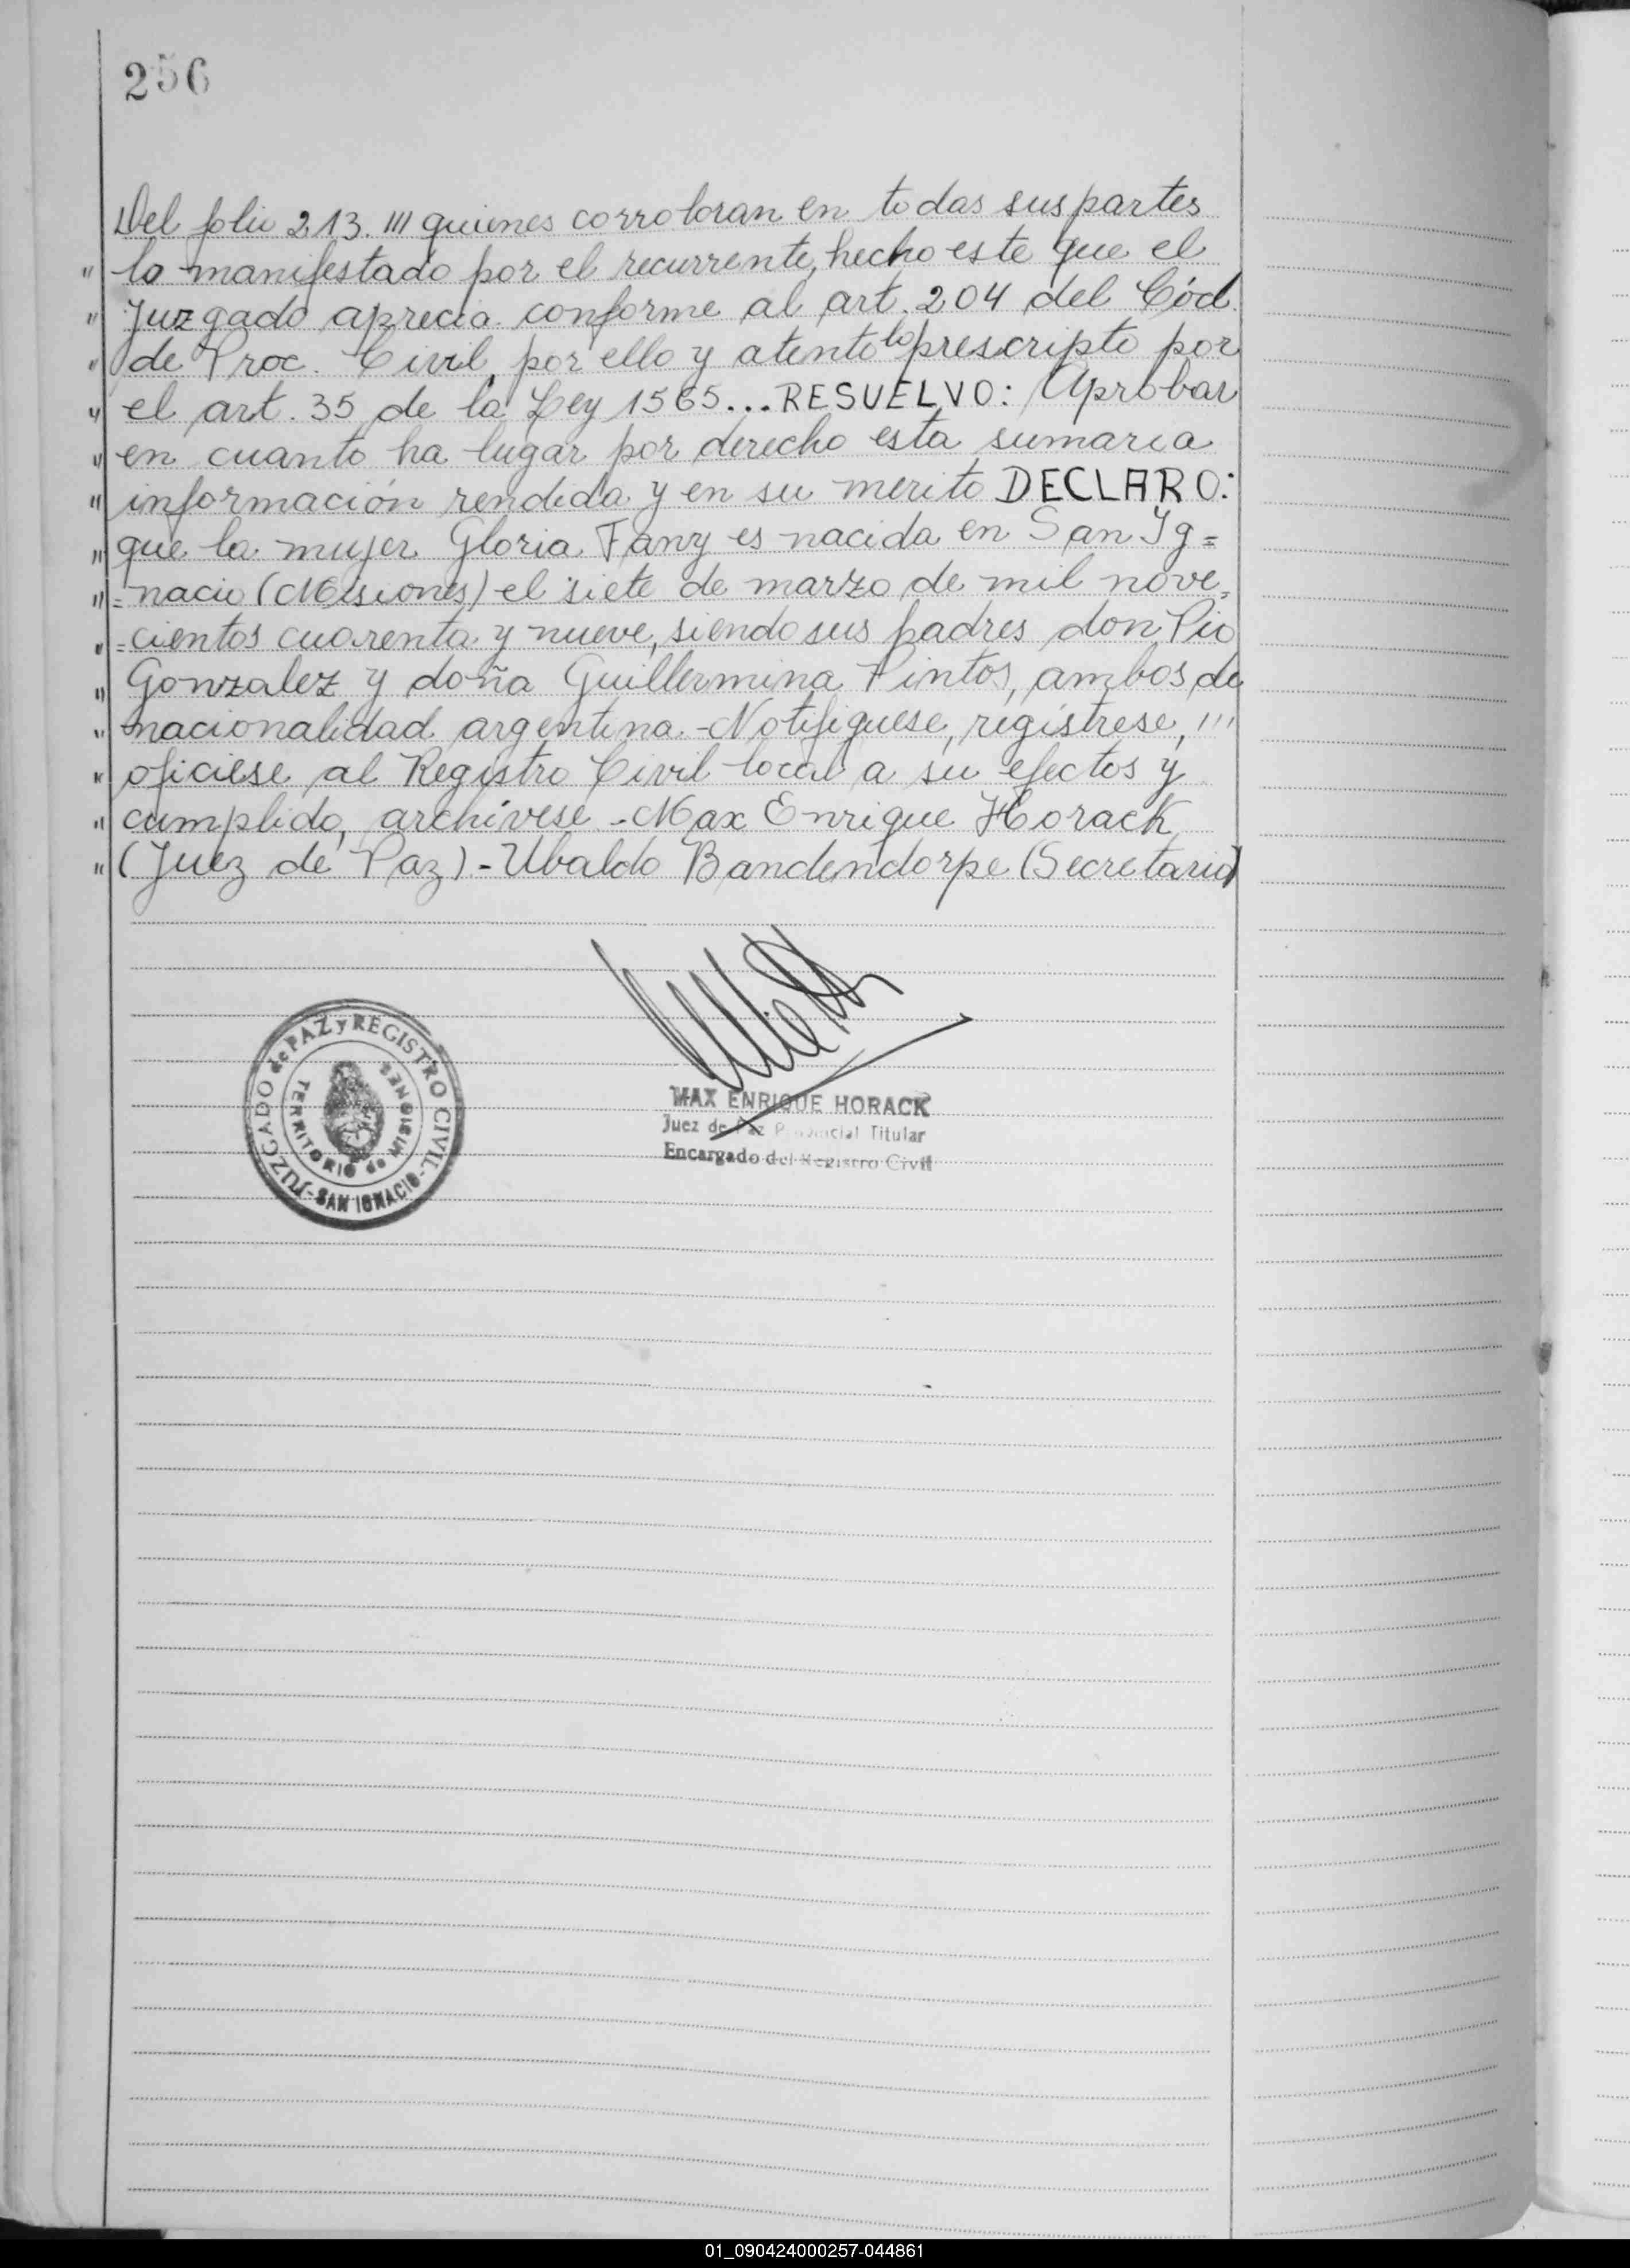 256
Del folio 213. /// quienes corroboran en todas sus partes
" lo manifestado por el recurrente, hecho este que el
" Juzgado aprecia conforme al art. 204 del Cód.
" de Proc. Civil, por ello y atento lo prescripto por
" el art. 35 de la Ley 1565... RESUELVO: Aprobar
" en cuanto ha lugar por derecho esta sumaria
" información rendida y en su merito DECLARO:
" que la mujer Gloria Fany es nacida en San Ig=
" =nacio (Misiones) el siete de marzo de mil nove=
" =cientos cuarenta y nueve, siendo sus padres don Pio
" Gonzalez y doña Guillermina Pintos, ambos de
" nacionalidad argentina.-Notifiquese, regístrese, ///
" oficiese al Registro Civil local a su efectos y
" cumplido, archívese.-Max Enrique Horack
" (Juez de Paz)-Ubaldo Bandendorpe (Secretario)
JUZGADO de PAZ y REGISTRO CIVIL
-SAN IGNACIO-
TERRITORIO de MISIONES
MAX ENRIQUE HORACK
Juez de Paz Provincial Titular
Encargado del Registro Civil
01_090424000257-044861